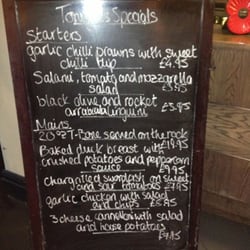 Tonight's Specials
Starters
garlic chilli prawns with sweet
chilli dip £4.95
Salami, tomato and mozzarella
salad £4.95
black olive and rocket
arrabiata linguini £3.95
Mains
20oz T-Bone served on the rock
£19.95
Baked duck breast with
crushed potatoes and peppercorn
sauce £9.95
chargrilled swordfish on sweet
and sour tomatoes £7.95
garlic chicken with salad
and chips £7.95
3 cheese cannelloni with salad
and house potatoes
£7.95